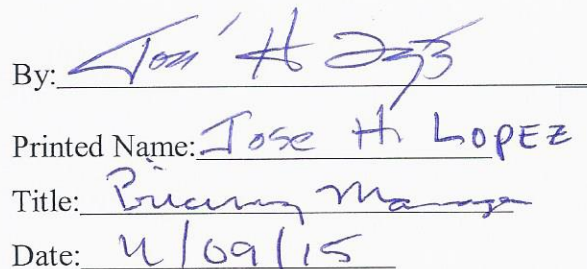 By: José H Lopez
Printed Name: Jose H. LOPEZ
Title: Pricing Manager
Date: 4/09/15